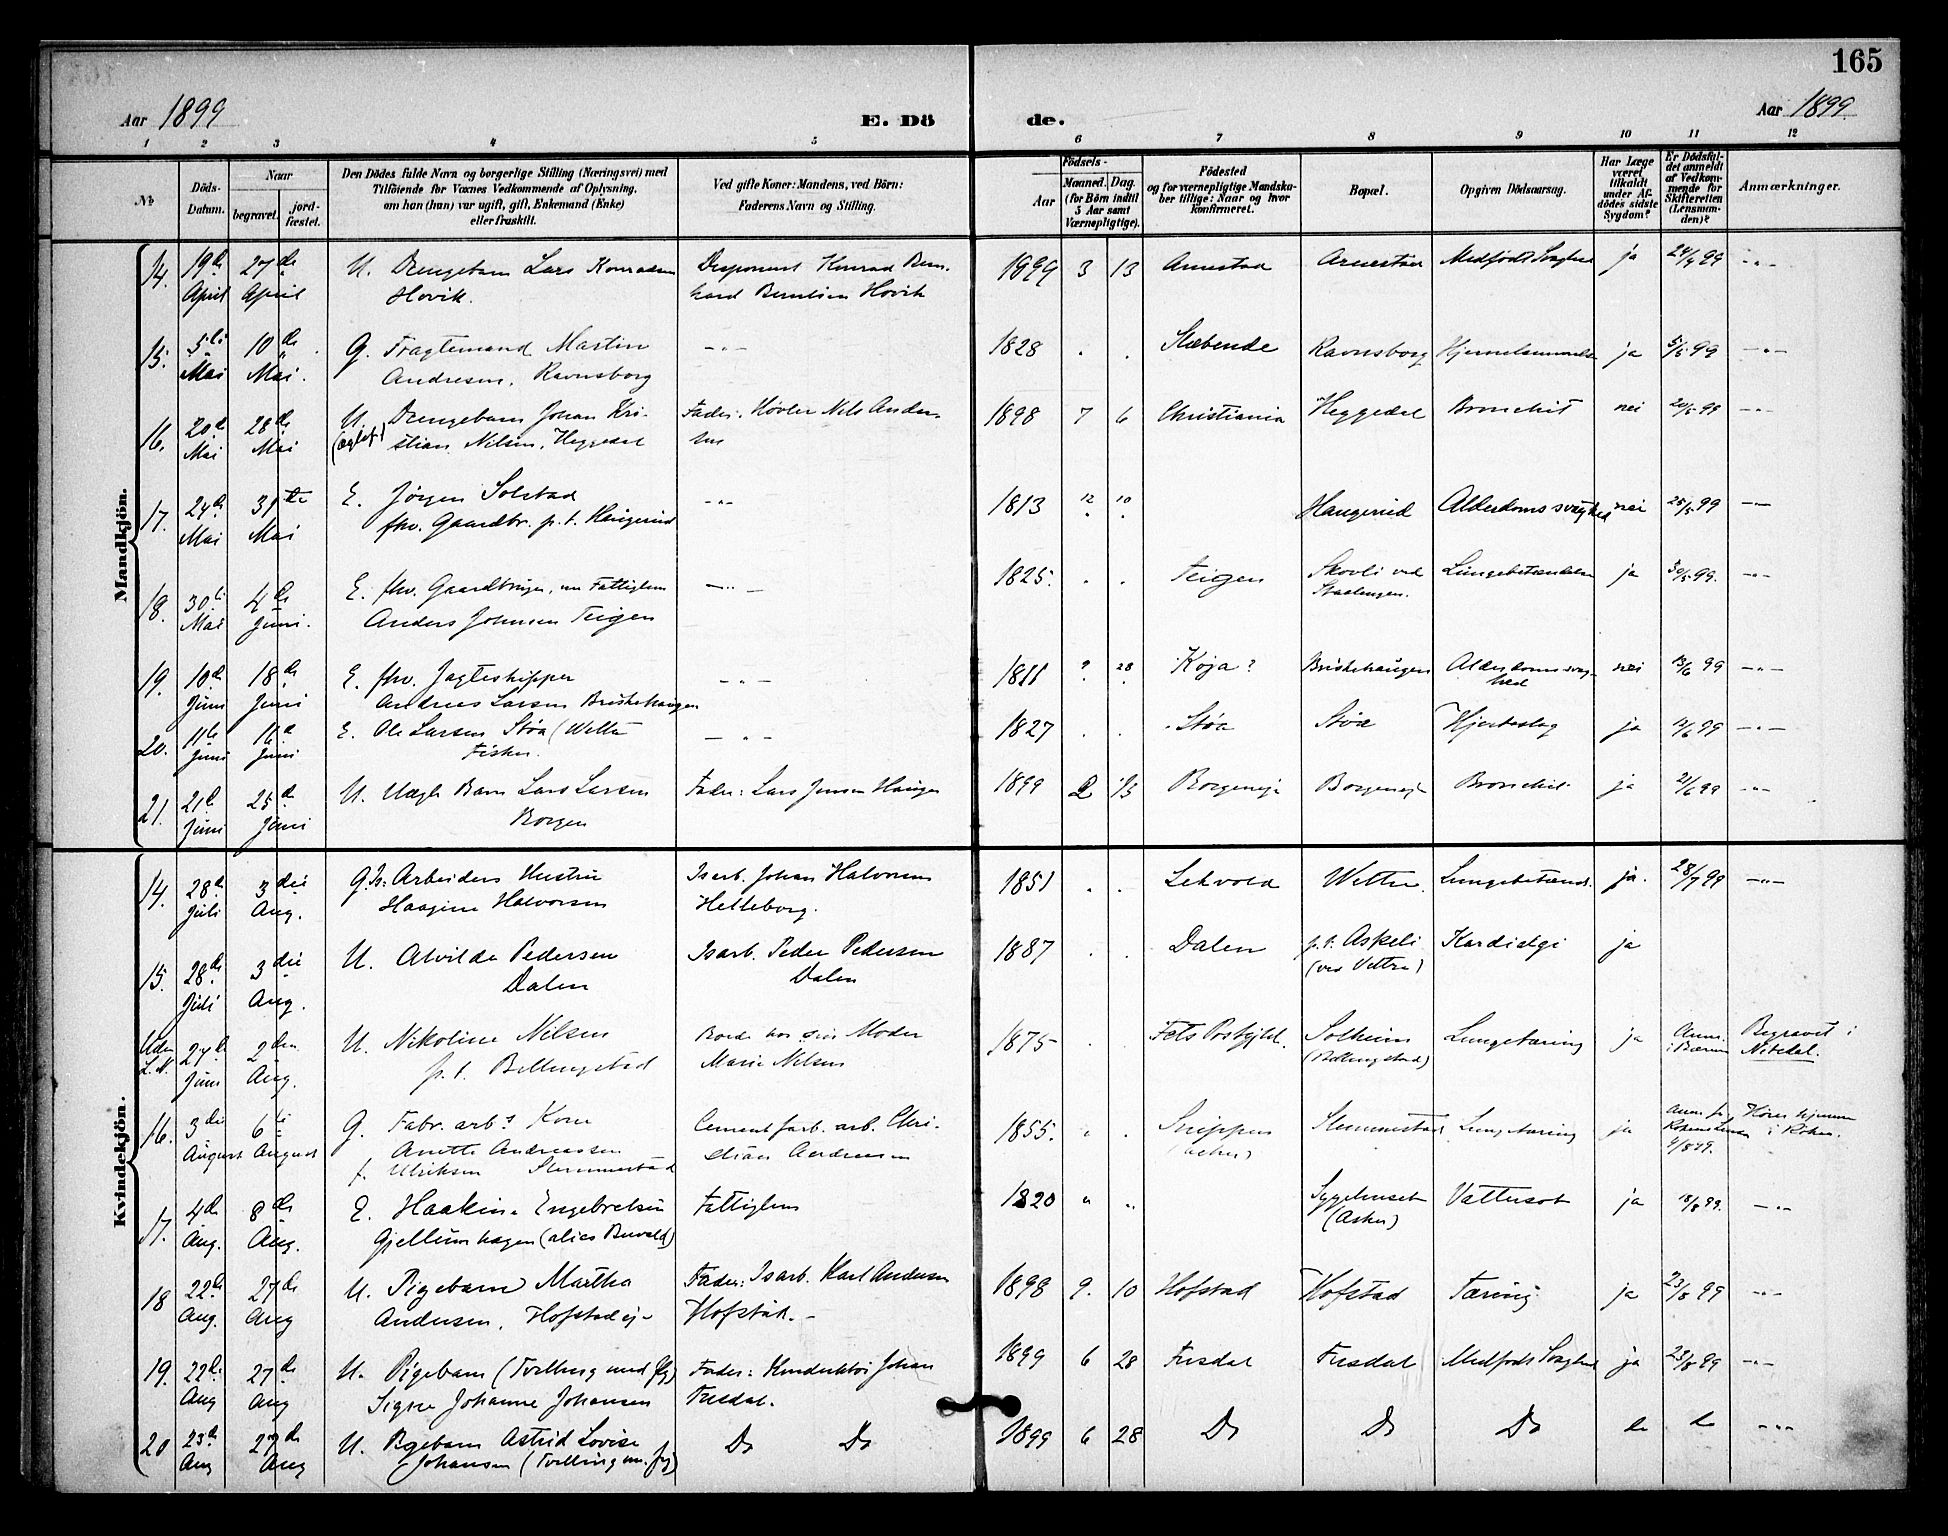 165
Aar 1899
E. Dö
de.
Aar 1899.
1 2 3 4 5 6 7 8 9 10 11 12
No
Döds-
Datum.
Naar
begravet.
jord-
fæstet.
Den Dödes fulde Navn og borgerlige Stilling (Næringsvei) med
Tilföiende for Voxnes Vedkommende af Oplysning,
om han (hun) var ugift, gift, Enkemand (Enke)
eller fraskilt.
Ved gifte Koner: Mandens, ved Börn:
Faderens Navn og Stilling.
Födsels-
Aar
Maaned. Dag.
(for Börn indtil
5 Aar samt
Værnepligtige).
Födested
og for værnepligtige Mandska-
ber tillige: Naar og hvor
konfirmeret.
Bopæl.
Opgiven Dödsaarsag.
Har Læge
været
tilkaldt
under Af-
dödes sidste
Sygdom?
Er Dödsfal-
det anmeldt
af Vedkom-
mende for
Skifteretten
(Lensman-
den)?
Anmærkninger.
Mandkjön.
14. 19de April 27de April U. Drengebarn Lars Konradsen Disponent Konrad 1899 3 13 Arnestad Arnestad Medfødt Svaghed ja 24/4 99 -"-
Hovik. Hovik
15. 5te Mai 10de Mai. G. Fragtemand Martin -"- 1828 . . Slæbende Ravnsborg ja 5/5 99 -"-
Andresen, Ravnsborg
16. 20de Mai 28de Mai U. Drengebarn Johan Kri- Fader: Høvler Nils Ander- 1898 7 6 Christiania Heggedal Bronchit nei 20/5 99 -"-
(ægtef.) stian Nilsen, Heggedal sen
17. 24de Mai 31te Mai E. Jørgen Solstad -"- 1813 12 10 Haugerud Alderdomssvaghed nei 25/5 99 -"-
fhv. Gaardbr. p.t. Haugerud
18. 30te Mai 4de Juni. E. fhv. Gaardbruger, nu Fattiglem -"- 1825. . . Teigen Skovli ved Lungebetændelse ja 30/5 99. -"-
Anders Johnsen Teigen
19. 10de Juni 18de Juni E. fhv. Jagteskipper -"- 1811 ? 28 Køja? Briskehaugen Alderdomssvag- nei 13/6 99 -"-
Andreas Larsen Briskehaugen hed
20. 11te Juni Juni E. Ole Larsen Støa (Wettre -"- 1827 . . Støa Støa Hjerteslag ja 99 -"-
Fisker.
21. 21de Juni 25de Juni U. Uægte Barn Lars Larsen Fader: Lars Jensen Hauger 1899 2 13 Borgeneje Borgenej. Bronchit ja 21/6 99 -"-
Borgen
Kvindekjön.
14. 28de Juli 3die Aug. G. Arbeiders Hustru Isarb. Johan Halvorsen 1851 . . Lekvold Wettre. Lungebetænd. ja. 28/7 99 -"-
Haagine Halvorsen Helleborg.
15. 28de Juli 3die Aug. U. Alvilde Pedersen Isarb. Peder Pedersen 1887 . . Dalen p.t. Askeli Kardialgi ja
Dalen Dalen (ved Vettre)
Uden L.N. 27de Juni 2den Aug. U. Nikoline Nilsen Boede hos sin Moder 1875 . . Fets Præstgjld. Solheim Lungetæring ja Anm. i Bærum Begravet i
p.t. Billingstad Marie Nilsen (Billingstad) Nitedal.
16. 3die August 6te August G. Fabr. arb.s Kone Cementfarb. arb. Chri- 1855. " . Slemmestad Lungetæring ja
Anette Andreassen stian Andresen i Røken.
f. Ulriksen Slemmestad
17. 4de Aug. 8de Aug. E. Haakine Engebretsen Fattiglem 1820 " " Sygehuset Vattersot ja 8/8 99. -"-
Gjellumhagen (alias Bervald) (Asker)
18 22de Aug. 27de Aug U. Pigebarn Martha Fader: Isarb. Karl Andersen 1898 9. 10 Hofstad Hofstad Tæring ja 23/8 99 -"-
Andersen, Hofstadej- Hofstad. -
19. 22de Aug 27de Aug U. Pigebarn (Tvilling med flg) Fader: Konduktør Johan 1899 6 28 Fusdal Fusdal Medfødt Svaghed ja 23/8 99 -"-
Signe Johanne Johansen Fusdal.
20 23de Aug 27de Aug U. Pigebarn Astrid Lovise Do Do 1899 6 28 Do Do Do do do "
Johansen (Tvilling m. flg)